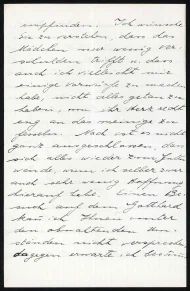 empfinden. Ich wünsche
sie zu verstehen, dass das
Mädchen nur wenig Ver-
schulden trifft u. dass
auch ich vielleicht mir
einige Vorwürfe zu machen
habe, nicht alles getan zu
haben, Ihr Herz recht
eng an das meinige zu
fesseln. Noch ist es nicht
ganz ausgeschlossen, dass
sich alles wieder zum Guten
wende, wenn ich selber zwar
auch sehr wenig Hoffnung
hierauf habe. Einen Be-
such auf dem Gotthard
kann ich Ihnen unter
den obwaltenden Um-
ständen nicht versprechen
dagegen erwarte ich bestimmt